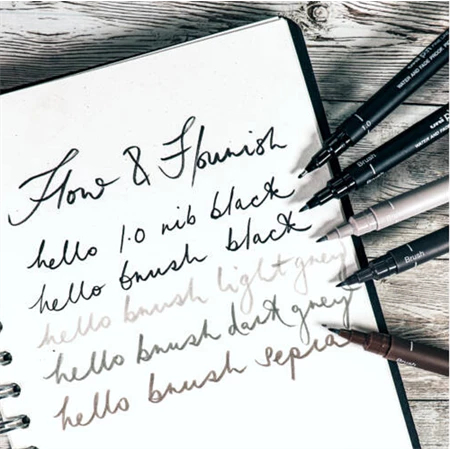 Flow & Flourish
hello 1.0 nib black
hello brush black
hello brush light grey
hello brush dark grey
hello brush sepia
1.0
WATER AND FADE PROOF
Brush
uni
WATER AND FADE
Brush
Brush
Brush